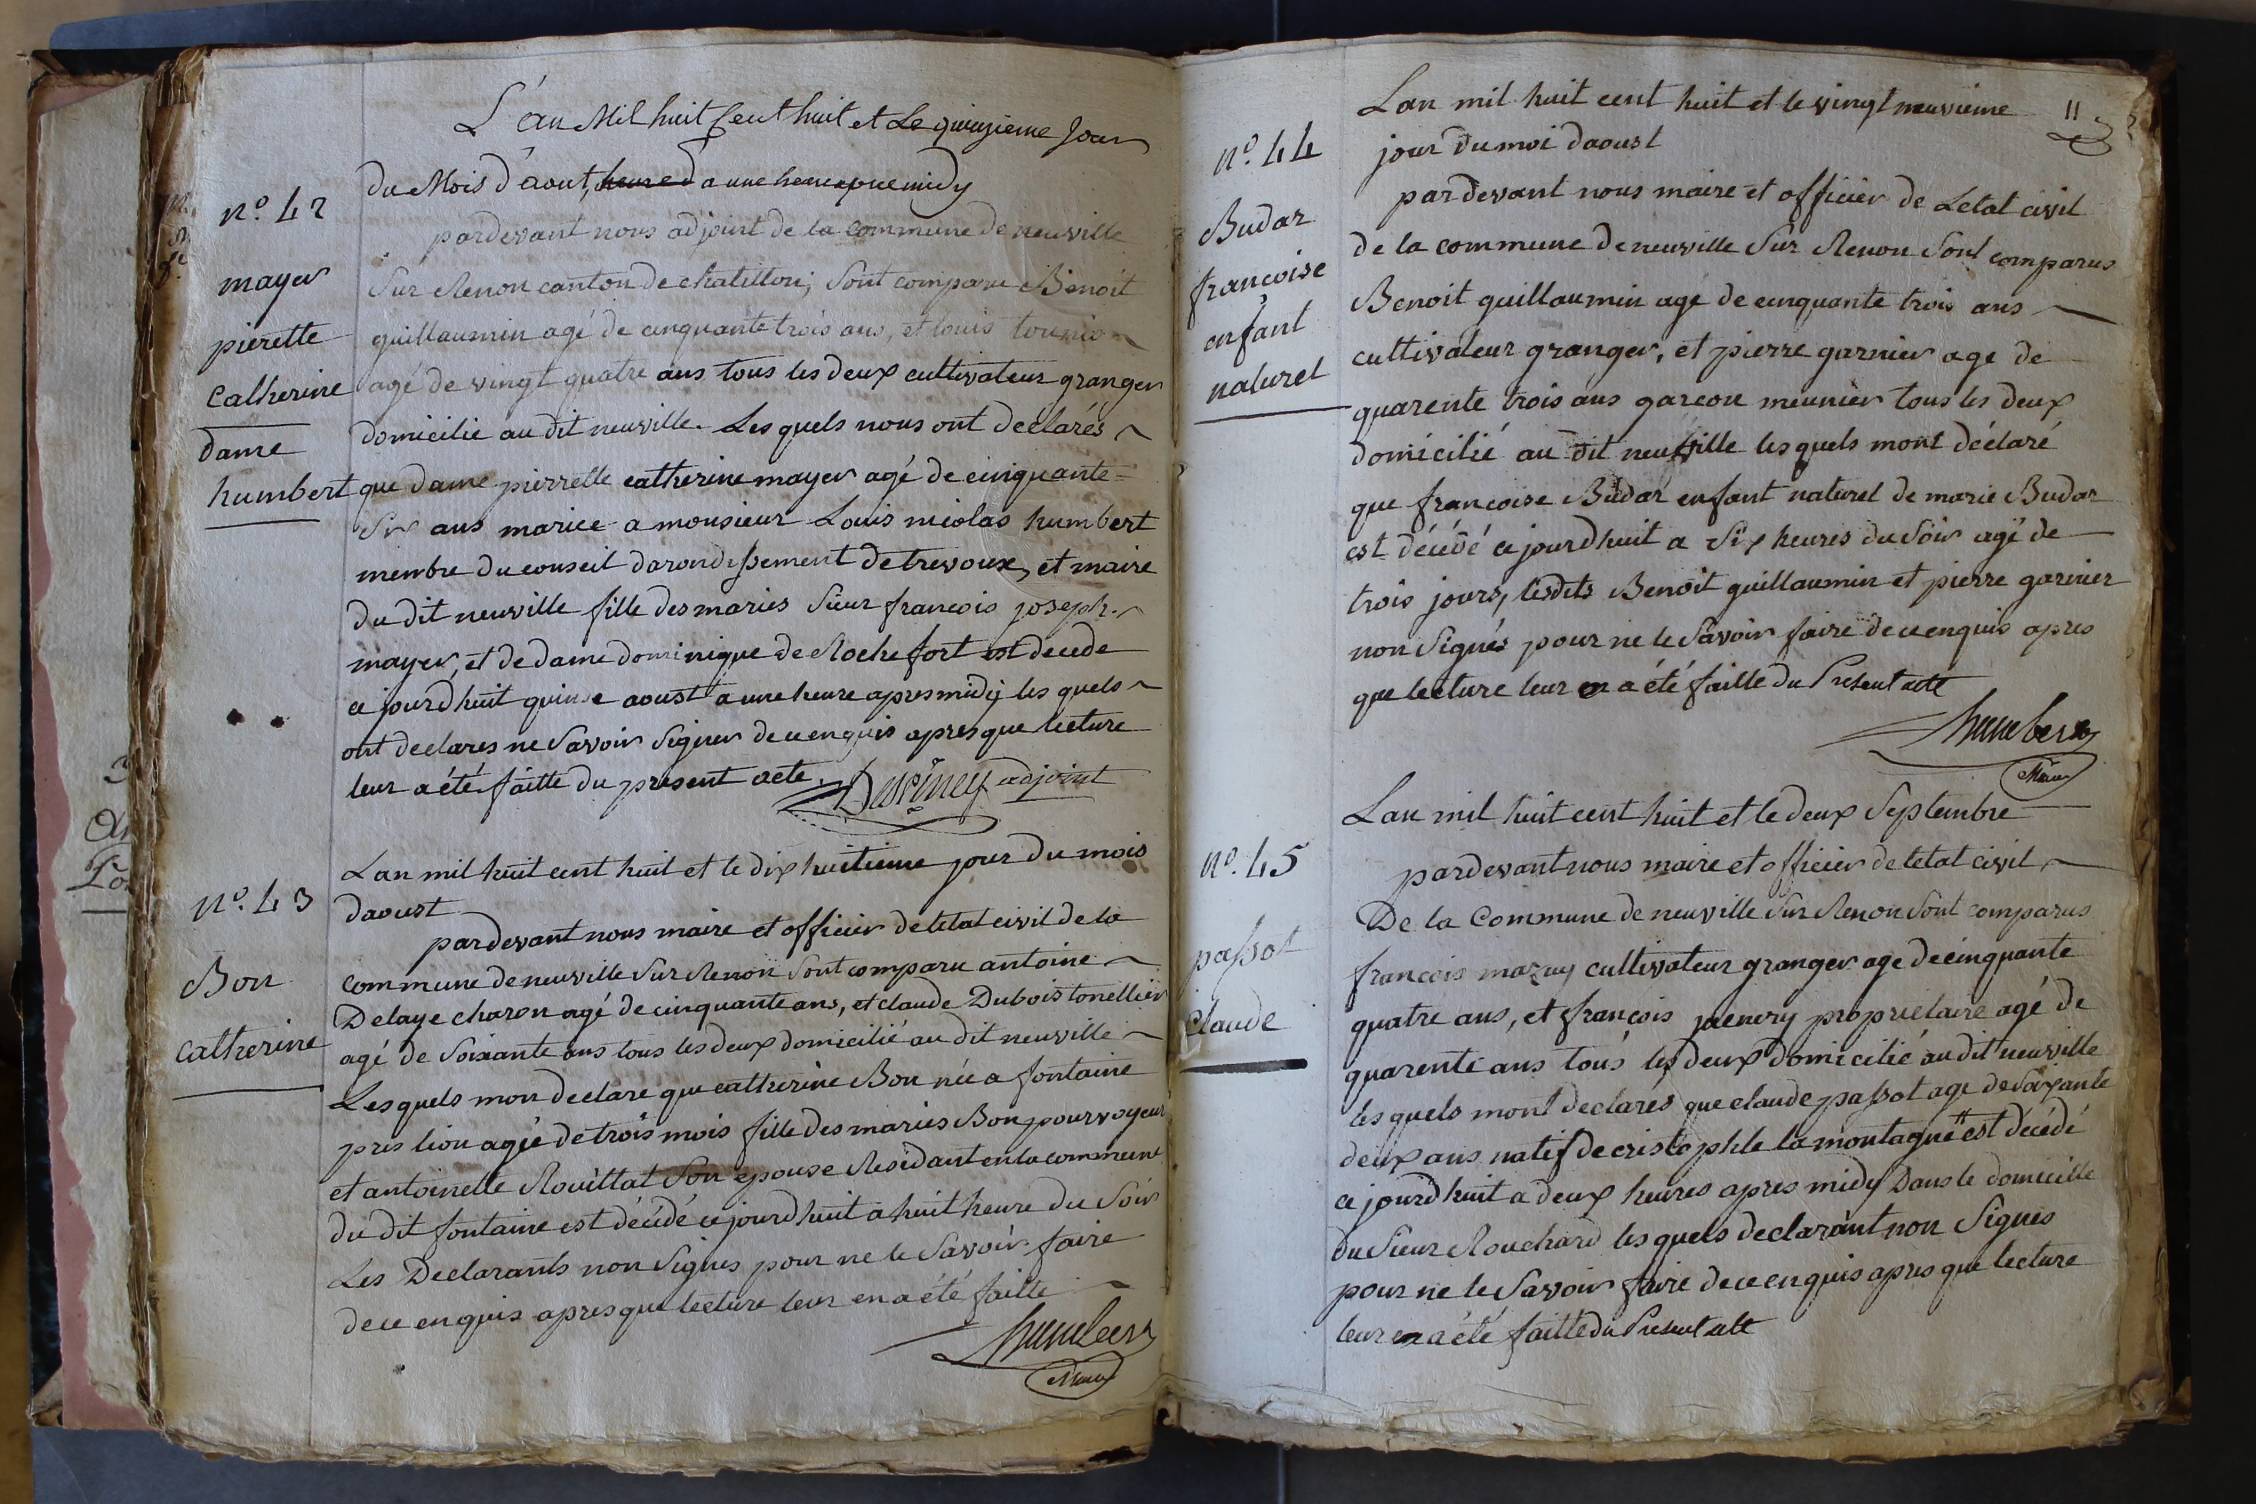 L'an Mil huit Cent huit et Le quinzieme Jour
du Mois d'aout, heure d a une heure apremidy
n.o 42
pardevant nous adjoint de la commune de neuville
mayer
Sur Renon canton de chatillon; Sont comparu Benoit
pierette
guillaumin agé de cinquante trois ans, et louis
Catherine
agé de vingt quatre ans tous les deux cultivateur granger
dame
domicilie au dit neuville. Les quels nous ont declarés
humbert
que dame pierrette catherine mayer agé de cinquante =
Six ans mariee a monsieur Louis nicolas humbert
membre du conseil darondissement de trevoux, et maire
du dit neuville fille des maries Sieur francois joseph
mayer, et de dame dominique de Rochefort est decede
ce jourdhuit quinse aoust a une heure apres midy les quels
ont declares ne Savoir Signer de ce enquis apres que lecture
leur a été faitte du present acte. adjoint
n.o 43
Bon
catherine
Lan mil huit cent huit et le dix huitieme jour du mois
daoust
pardevant nous maire et officier de letat civil de la
commune de neuville Sur Renon Sont comparu antoine
Delaye charon agé de cinquante ans, et claude Dubois tonellier
agé de Soixante ans tous les deux domicilié au dit neuville
Les quels mon declare que catherine Bon née a fontaine
pres lion agée de trois mois fille des maries Bon pourvoyeur
et antoinette Rouillat Son epouse Residant en la commune
du dit fontaine est décédé ce jourdhuit a huit heure du Soir
Les Declarants non Signes pour ne le Savoir faire
de ce enquis apres que lecture leur en a été faitte
humbert
Maire
11
Lan mil huit cent huit et le vingt neuvieme
jour du moi daoust
n.o 44
Budar
francoise
enfant
naturel
pardevant nous maire et officier de Letat civil
de la commune de neuville Sur Renon Sont comparus
Benoit guillaumin agé de cinquante trois ans
cultivateur granger, et pierre garnier age de
quarente trois ans garcon meunier tous les deux
domicilié au dit neuville les quels mont déclaré
que francoise Budar enfant naturel de marie Budar
est décédé ce jourdhuit a Six heures du Soir agé de
trois jours, lesdits Benoit guillaumin et pierre garnier
non Signés pour ne le Savoir faire de ce enquis apres
que lecture leur en a été faitte du Present acte
humbert
Maire
Lan mil huit cent huit et le deux Septembre
n.o 45
passot
Claude
pardevant nous maire et officier de letat civil
De la Commune de neuville Sur Renon Sont comparus
francois mazuy cultivateur granger age de cinquante
quatre ans, et françois propriétaire agé de
quarente ans tous les deux domicilié au dit neuville
les quels mont declares que claude passot age de Soixante
deux ans natif de cristophle la montagne est décédé
ce jourdhuit a deux heures apres midy Dans le domicille
du Sieur Rouchard les quels declarant non Signés
pour ne le Savoir faire de ce enquis apres que lecture
leur en a été faitte du Present acte